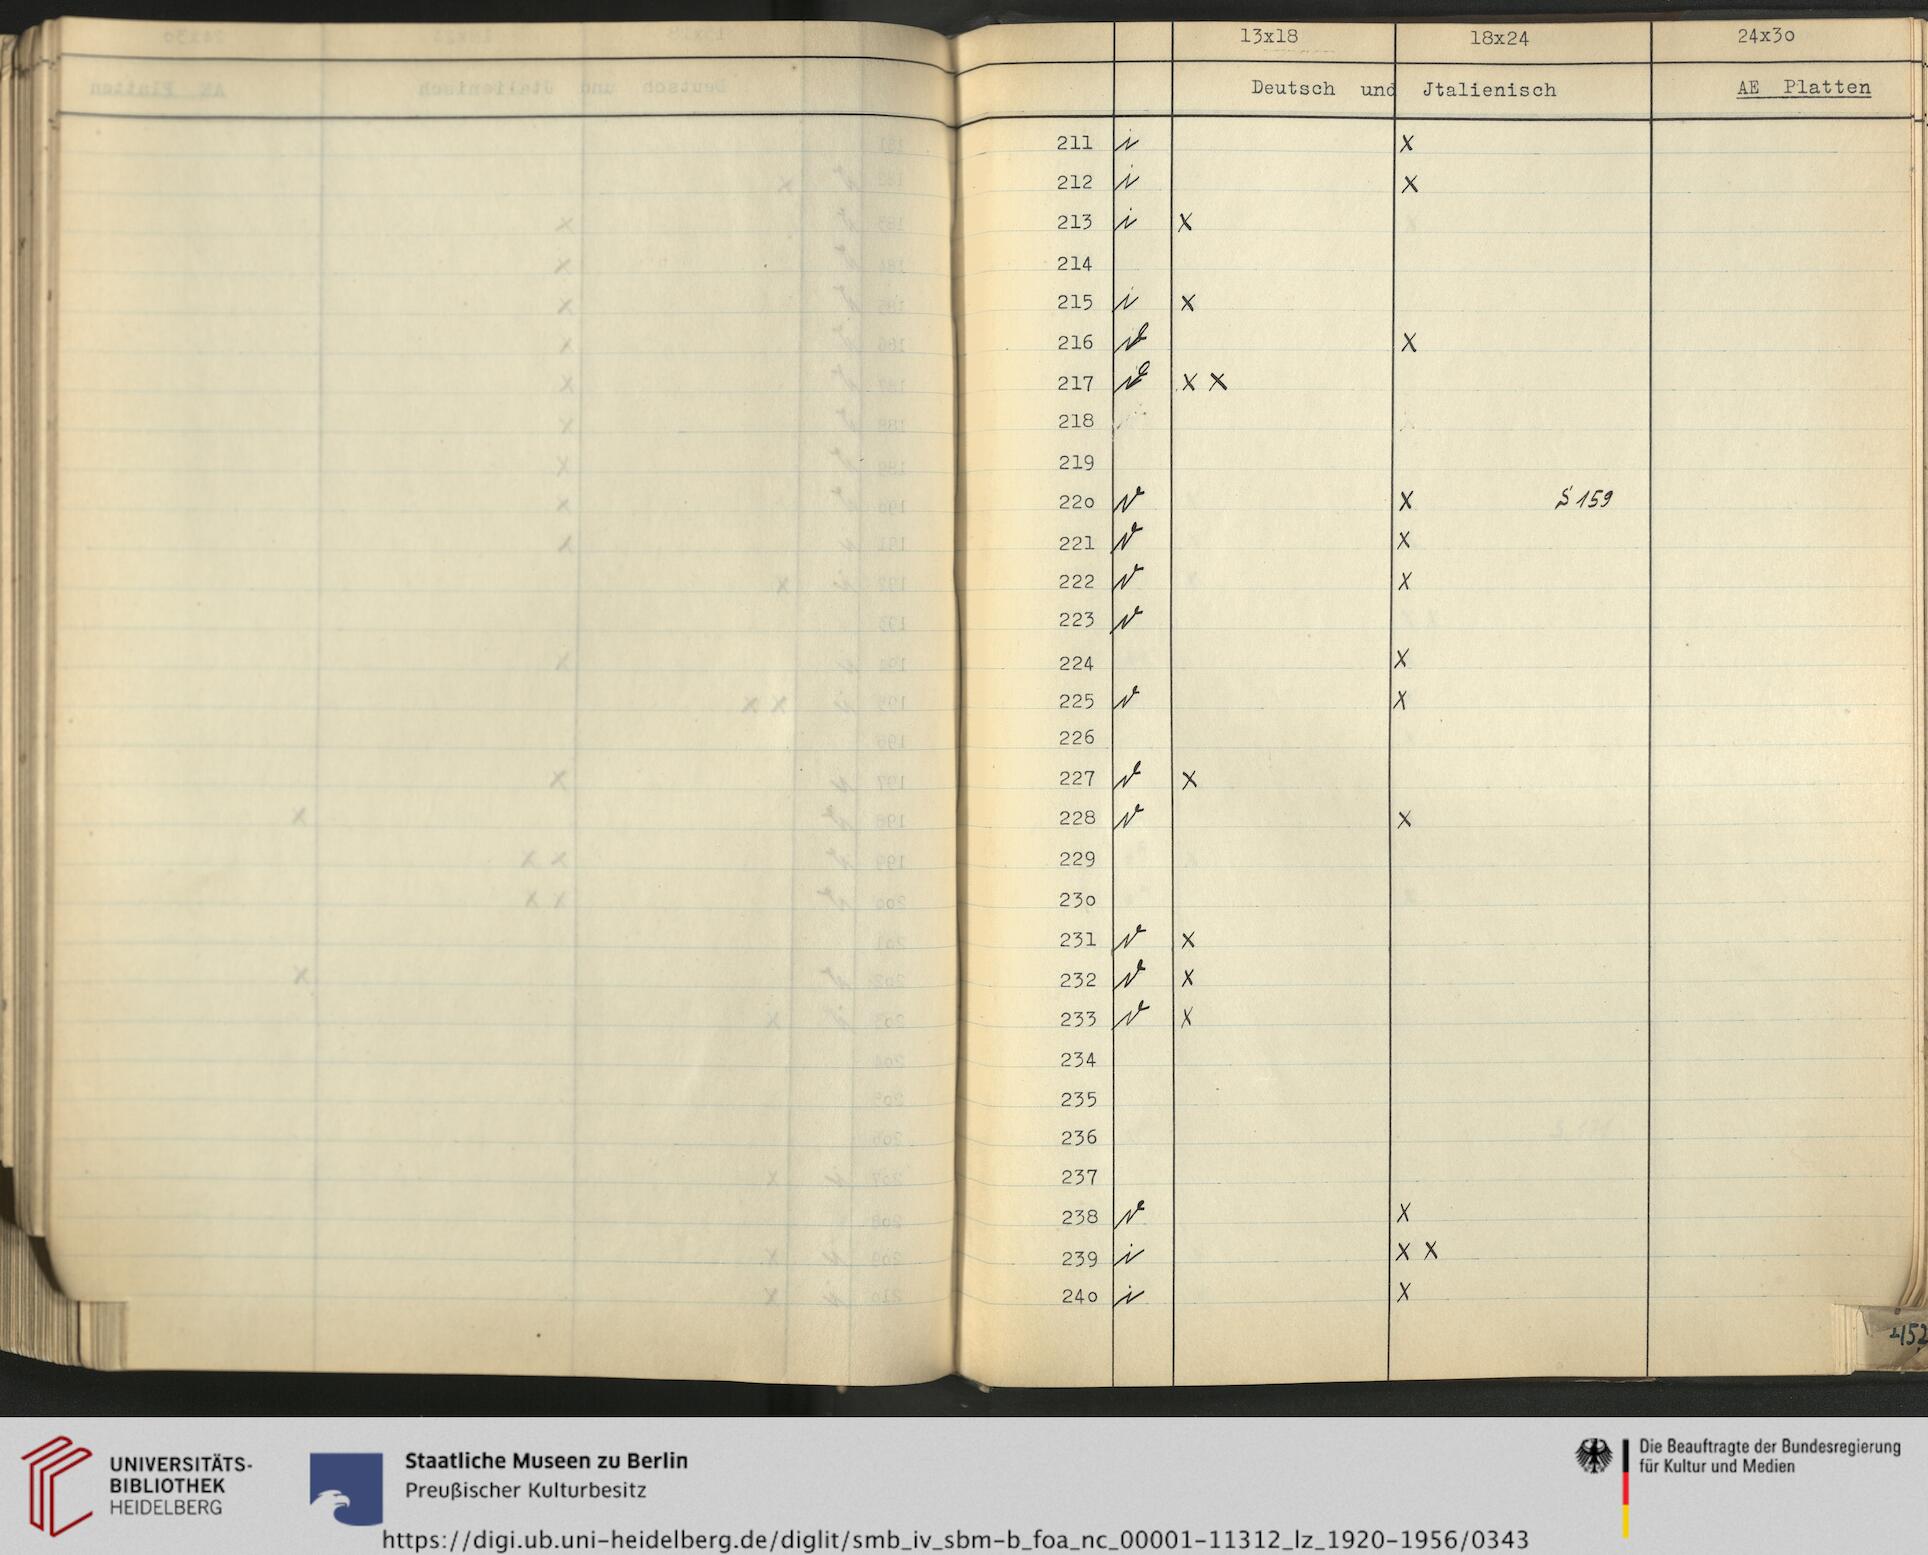 13x18 18x24 24x3o
Deutsch und Jtalienisch AE Platten
211 i x
212 i x
213 i x
214
215 i x
216 x
217 x x
218
219
22o x S 159
221 x
222 x
223
224 x
225 x
226
227 x
228 x
229
23o
231 x
232 x
233 x
234
235
236
237
238 x
239 i x x
24o i x
UNIVERSITÄTS-
BIBLIOTHEK
HEIDELBERG
Staatliche Museen zu Berlin
Preußischer Kulturbesitz
Die Beauftragte der Bundesregierung
für Kultur und Medien
https://digi.ub.uni-heidelberg.de/diglit/smb_iv_sbm-b_foa_nc_00001-11312_lz_1920-1956/0343